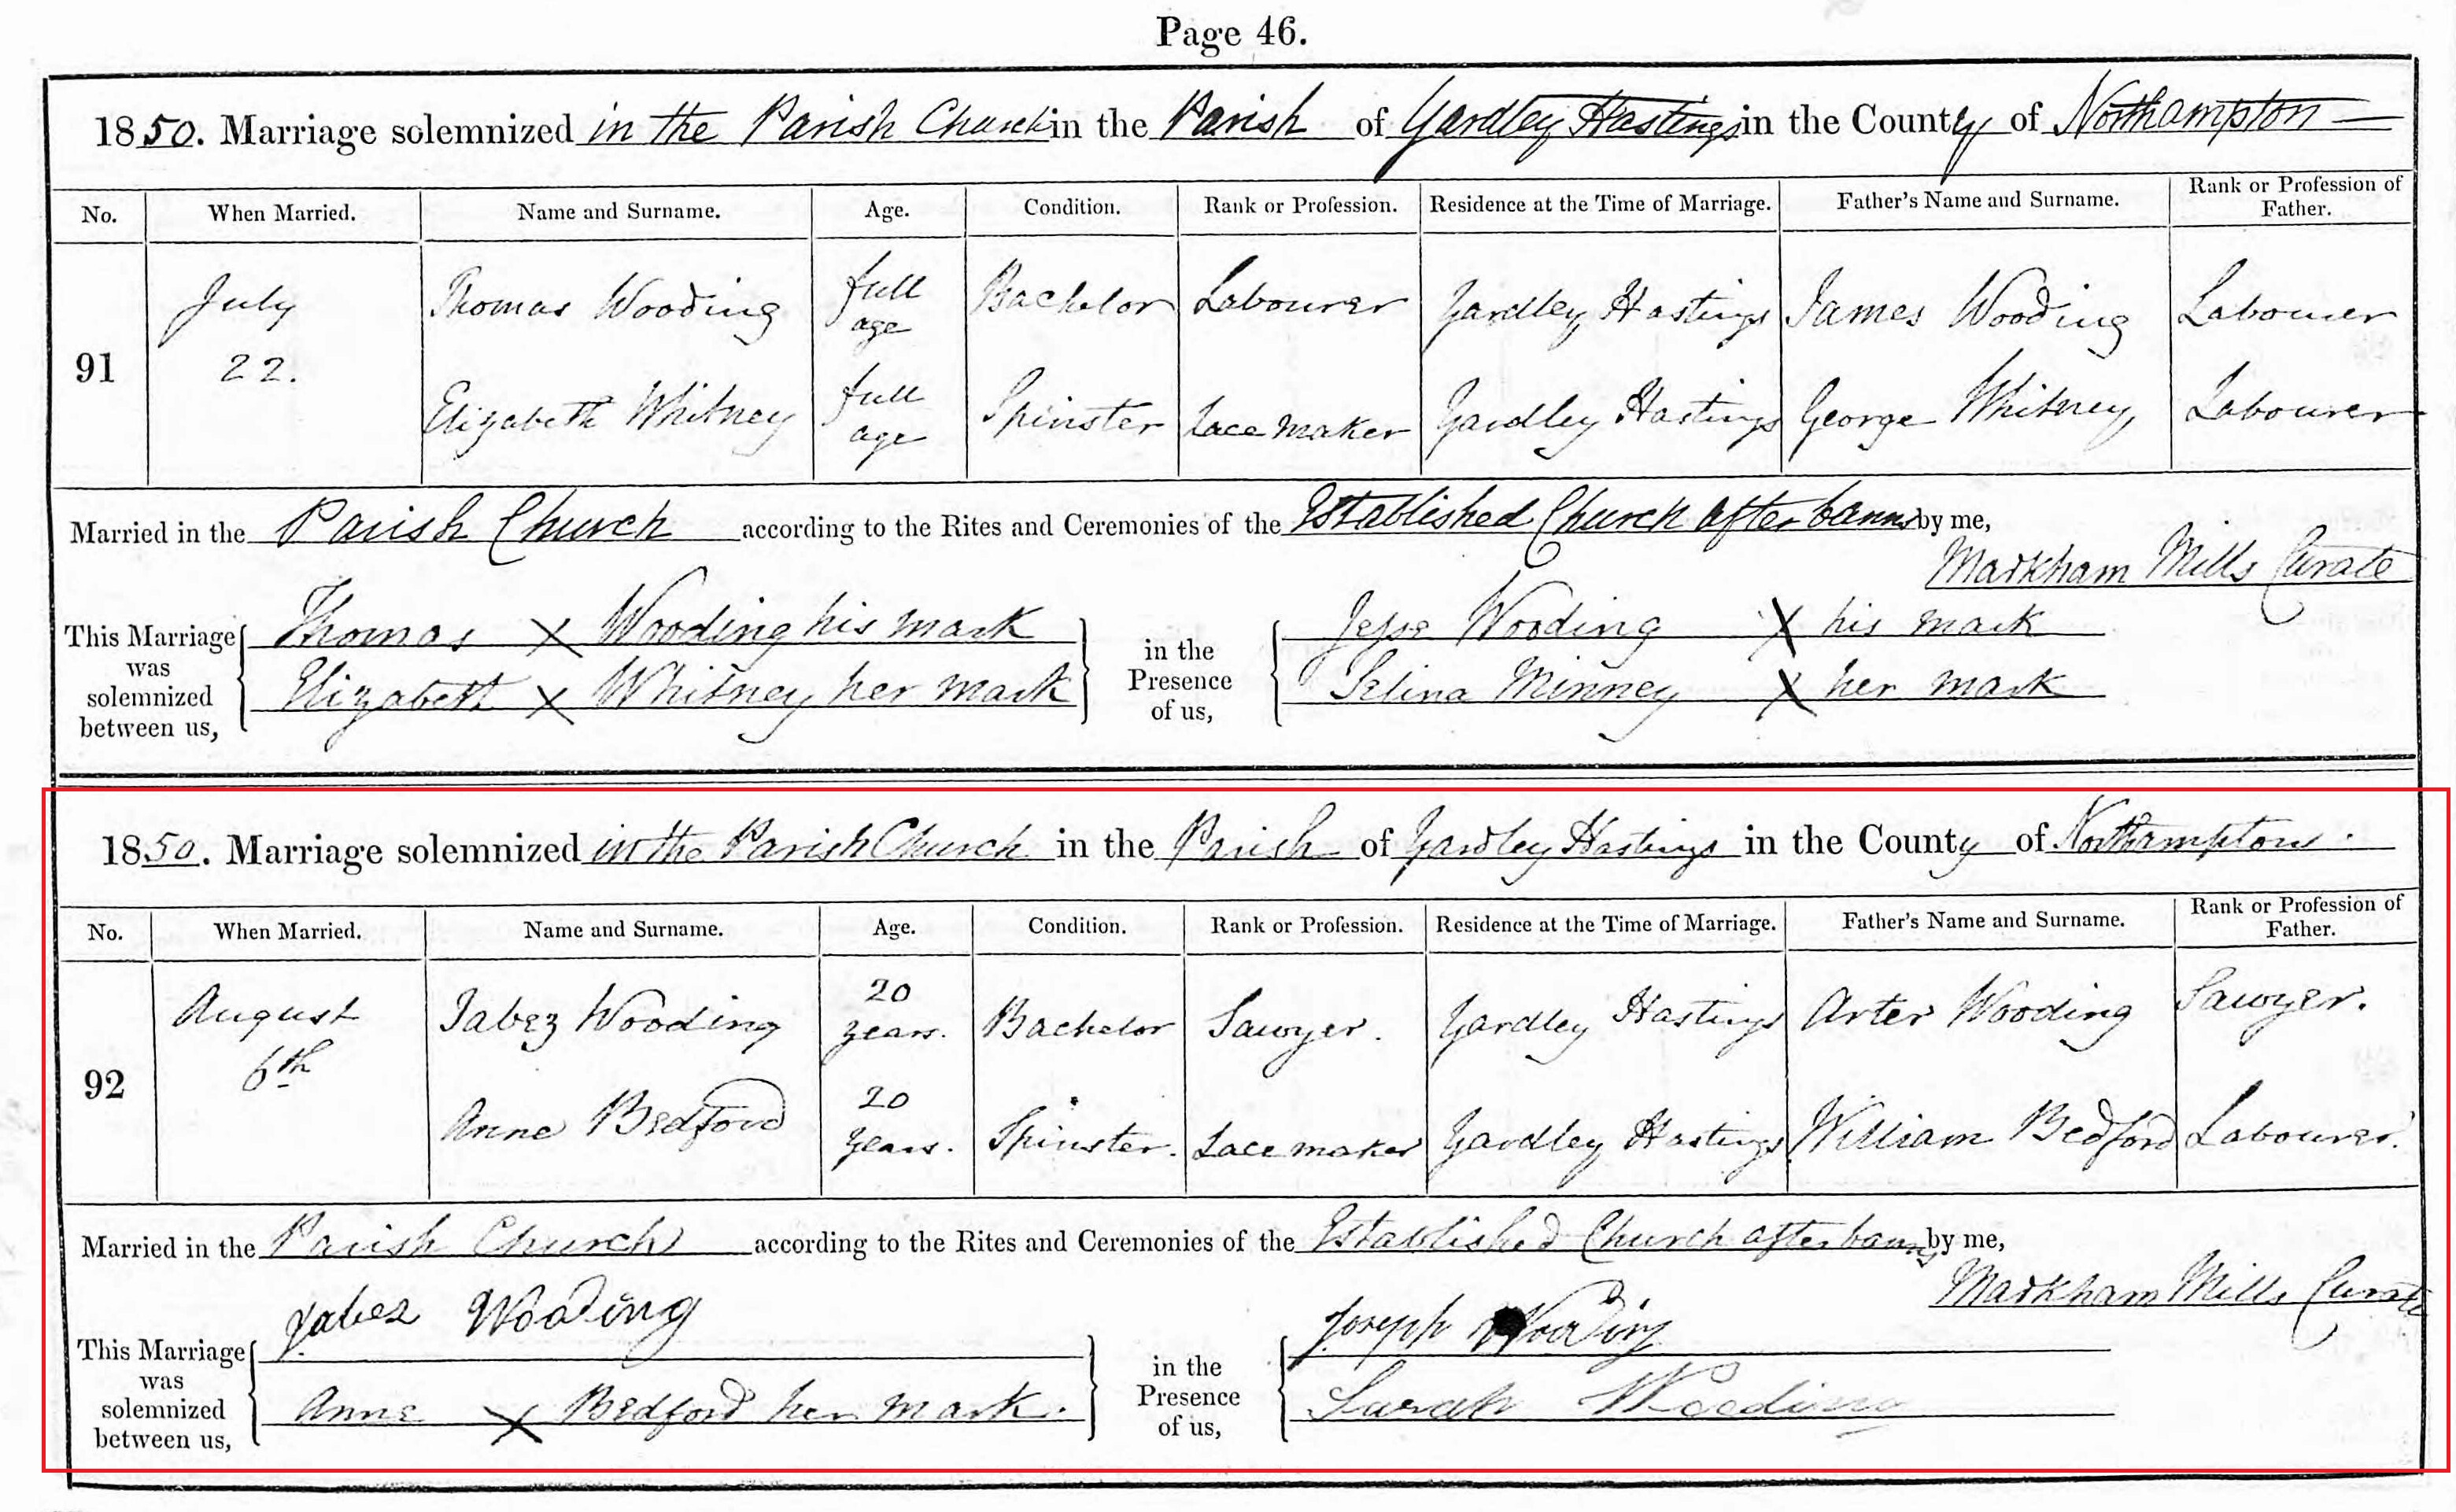 Page 46.
1850. Marriage solemnized in the Parish Church in the Parish of Yardley Hastings in the County of Northampton
No. When Married. Name and Surname. Age. Condition. Rank or Profession. Residence at the Time of Marriage. Father's Name and Surname. Rank or Profession of Father.
91 July 22. Thomas Wooding full age Bachelor Labourer Yardley Hastings James Wooding Labourer
Elizabeth Whitney full age Spinster Lace maker Yardley Hastings George Whitney Labourer
Married in the Parish Church according to the Rites and Ceremonies of the Established Church after banns by me,
Markham Mills Curate
This Marriage was solemnized between us,
Thomas X Wooding his mark
Elizabeth X Whitney her mark
in the Presence of us,
Jesse Wooding X his mark
Selina Minney X her mark
1850. Marriage solemnized in the Parish Church in the Parish of Yardley Hastings in the County of Northampton.
No. When Married. Name and Surname. Age. Condition. Rank or Profession. Residence at the Time of Marriage. Father's Name and Surname. Rank or Profession of Father.
92 August 6th Jabez Wooding 20 years. Bachelor Sawyer. Yardley Hastings Arter Wooding Sawyer.
Anne Bedford 20 years. Spinster. Lace maker Yardley Hastings William Bedford Labourer.
Married in the Parish Church according to the Rites and Ceremonies of the Established Church after banns by me,
Markham Mills Curate
This Marriage was solemnized between us,
Jabez Wooding
Anne X Bedford her mark.
in the Presence of us,
Joseph Wooding
Sarah Wooding